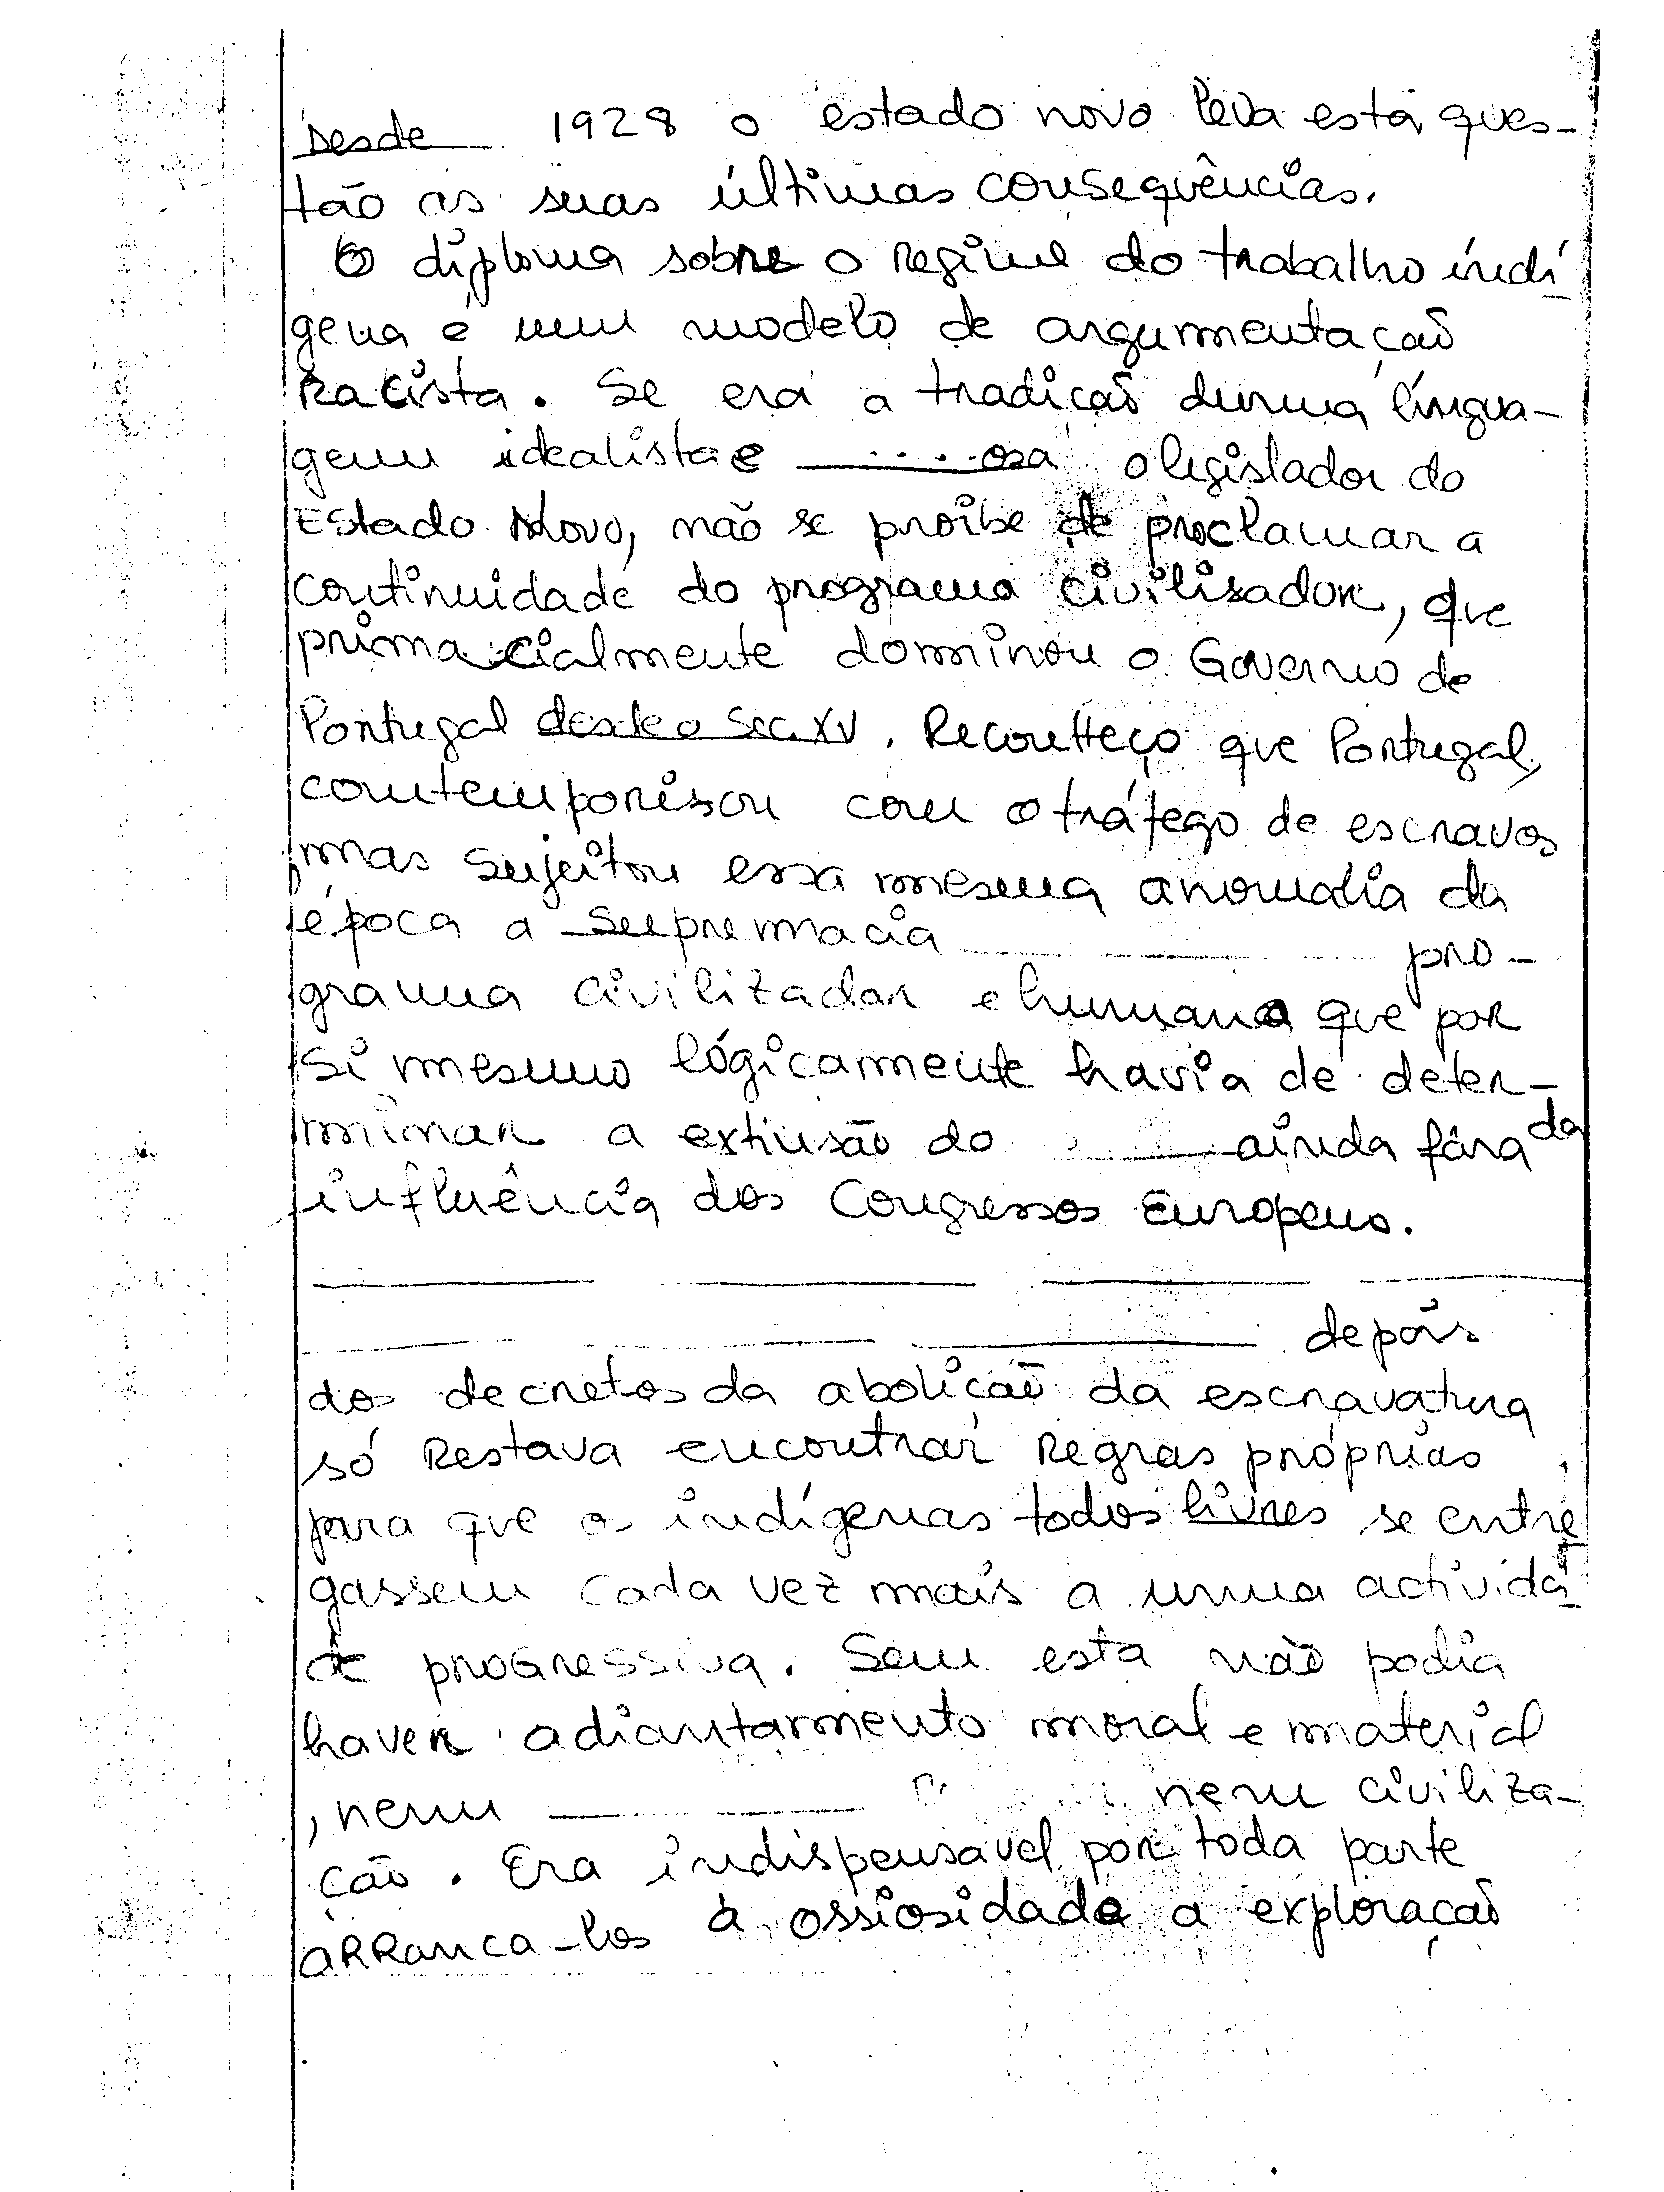 Desde 1928 o estado novo leva esta ques-
tão as suas últimas consequências.
O diploma sobre o regime do trabalho indí
gena é um modelo de argumentação
Racista. Se era a tradição duma lingua-
gem idealista e ____ . . . . osa o legislador do
Estado Novo, não se proibe de proclamar a
continuidade do programa civilisador, que
prima cialmente dominou o Governo de
Portugal desde o Sec. XV. Reconheço que Portugal,
contemporisou com o tráfego de escravos
mas sujeitou essa mesma anomalia da
época a supremacia ____ pro-
grama civilizador e humano que por
si mesmo lógicamente havia de deter-
minar a extinsão do ____ ainda fóra da
influência dos Congressos Europeus.
____ ____ ____ ____
____ ____ ____ depois
dos decretos da abolição da escravatura
só Restava encontrar Regras próprias
para que os indígenas todos livres se entre
gassem cada vez mais a uma activida
de progressiva. Sem esta não podia
haver adiantarmento moral e material
, nem ____ ____ nem civiliza-
ção. Era indispensavel por toda parte
arranca-los à ossiosidade a exploração